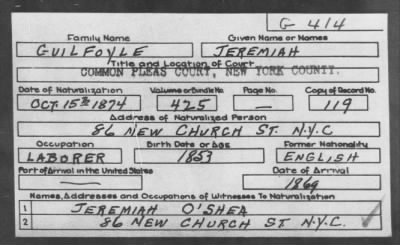 G 414
Family Name Given Name or Names
GUILFOYLE JEREMIAH
Title and Location of Court
COMMON PLEAS COURT, NEW YORK COUNTY.
Date of Naturalization Volume or Bundle No. Page No. Copy of Record No.
OCT. 15TH 1874 425 — 119
Address of Naturalized Person
86 NEW CHURCH ST. N.Y.C
Occupation Birth Date or Age Former Nationality
LABORER 1853 ENGLISH
Port of Arrival in the United States Date of Arrival
— 1869
Names, Addresses and Occupations of Witnesses To Naturalization
1 JEREMIAH O'SHEA
2 86 NEW CHURCH ST N.Y.C.